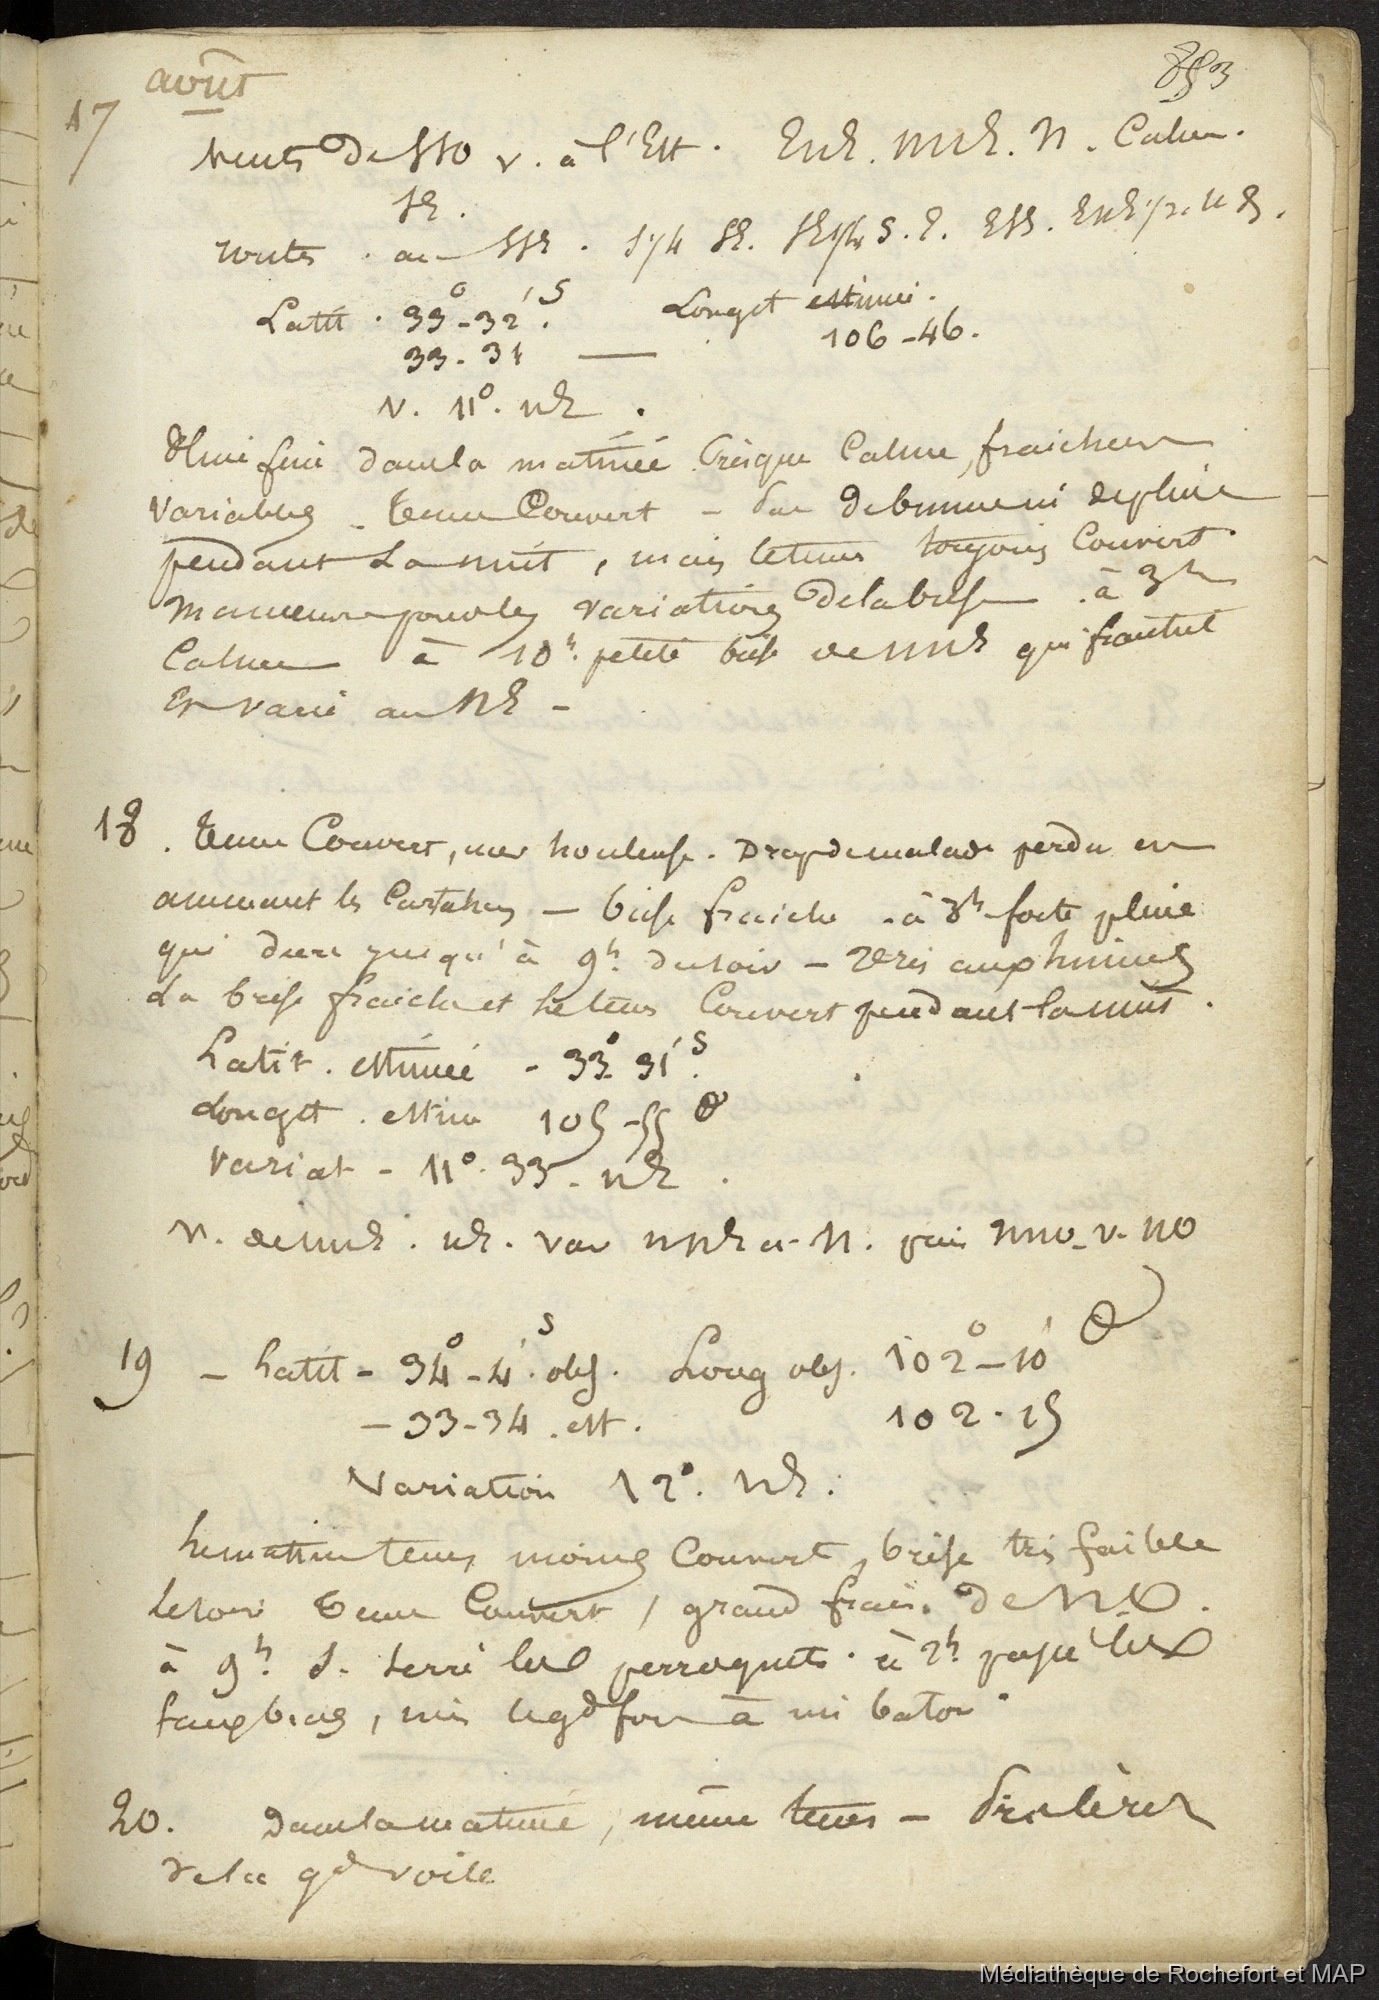 août
853
17
Vents de SSO v. à l'Est. ENE. NNE. N. Calme.
SE.
routes. au SSE. S1/4 SE. SE1/4 S. E. ESE. ENE
Latit. 33°-32' S. Longit estimée.
33-31 — 106-46.
V. 11°. NE.
Pluie fine dans la matinée. Presque Calme, fraicheurs
Variables. tems Couvert - de pluie
pendant La nuit, mais le tems toujours Couvert.
Manoeuvre pour les variations de la brise. à 3h
Calme à 10h. petite brise de NNE qui fraichit
Et varie au NE -
18. tems Couvert, mer houleuse. Drap de malade perdu en
amenant les Cartahus — brise fraiche. à 3h forte pluie
qui dure jusqu'à 9h. du soir - 2 Ris aux huniers
La brise fraiche et le tems Couvert pendant la nuit.
Latit. estimée - 33° 31' S.
Longit. estim 105-55 O
Variat - 11°. 33. NE.
V. de NNE. NE. var NNE et N. puis NNO. v. NO
19 - Latit - 34°-4' S. obs. Long obs. 102°-10' O
- 33-34. est. 102.15
Variation 12°. NE.
Le matin tems moins Couvert, brise très faible
le soir tems Couvert, grand frais. de NO.
à 9h. S. serré les perroquets. à 2h
faux bras, mis le gd foc à mi baton.
20. Dans la matinée, même tems -
de la gd voile
Médiathèque de Rochefort et MAP